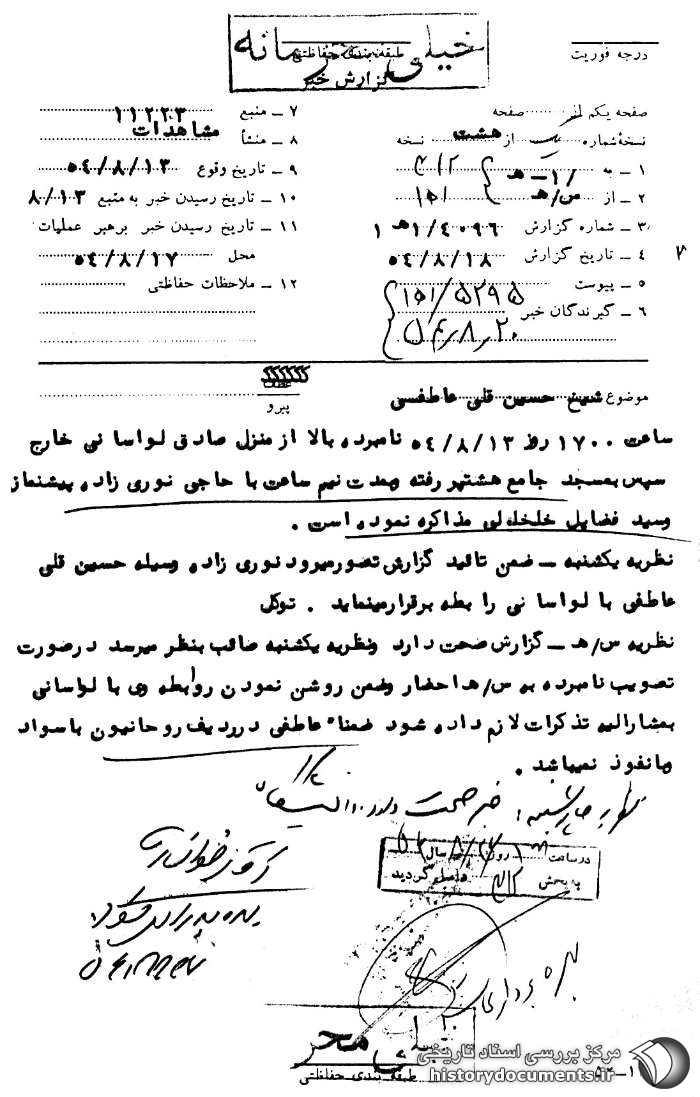 خیلی محرمانه
طبقه‌بندی حفاظتی
گزارش خبر
درجه فوریت
صفحه یکم از صفحه
نسخهٔ شماره یک از هشت نسخه
۱ ـ به ۳۱۲
۱/ ـ هـ
۲ ـ از ۱۵۱
س/هـ
۳ ـ شماره گزارش ۴۰۹۶/۱هـ۱
۴ ـ تاریخ گزارش ۵۴/۸/۱۸
۵ ـ پیوست
۶ ـ گیرندگان خبر
۱۵۱/۵۲۹۵
۵۴٫۸٫۲۰
۷ ـ منبع ۱۱۲۲۳
۸ ـ منشأ مشاهدات
۹ ـ تاریخ وقوع ۵۴/۸/۱۳
۱۰ ـ تاریخ رسیدن خبر به منبع ۸/۱۳
۱۱ ـ تاریخ رسیدن خبر برهبر عملیات
محل ۵۴/۸/۱۷
۱۲ ـ ملاحظات حفاظتی
موضوع شیخ حسین قلی عاطفی
عطف
پیرو
ساعت ۱۷۰۰ روز ۵۴/۸/۱۳ نامبرده بالا از منزل صادق لواسانی خارج
سپس بمسجد جامع هشتپر رفته وبمدت نیم ساعت با حاجی نوری زاده پیشنماز
وسید فضایل خلخالی مذاکره نموده است .
نظریه یکشنبه ـ ضمن تائید گزارش تصورمیرود نوری زاده وسیله حسین قلی
عاطفی با لواسانی رابطه برقرارمینماید . توکل
نظریه س/هـ ـ گزارش صحت دارد ونظریه یکشنبه صائب بنظر میرسد درصورت
تصویب نامبرده به س/هـ احضار وضمن روشن نمودن روابطه وی با لواسانی
بمشارالیه تذکرات لازم داده شود ضمنا" عاطفی درردیف روحانیون باسواد
ومانفوذ نمیباشد .
نظریه چهارشنبه : خبر صحت دارد
در ساعت روز سال
به بخش ۳۱۲ واصل گردید
آقای
بهره برداری
خیلی محرمانه
طبقه بندی حفاظتی
۱ـ۵۲
مرکز بررسی اسناد تاریخی
historydocuments.ir